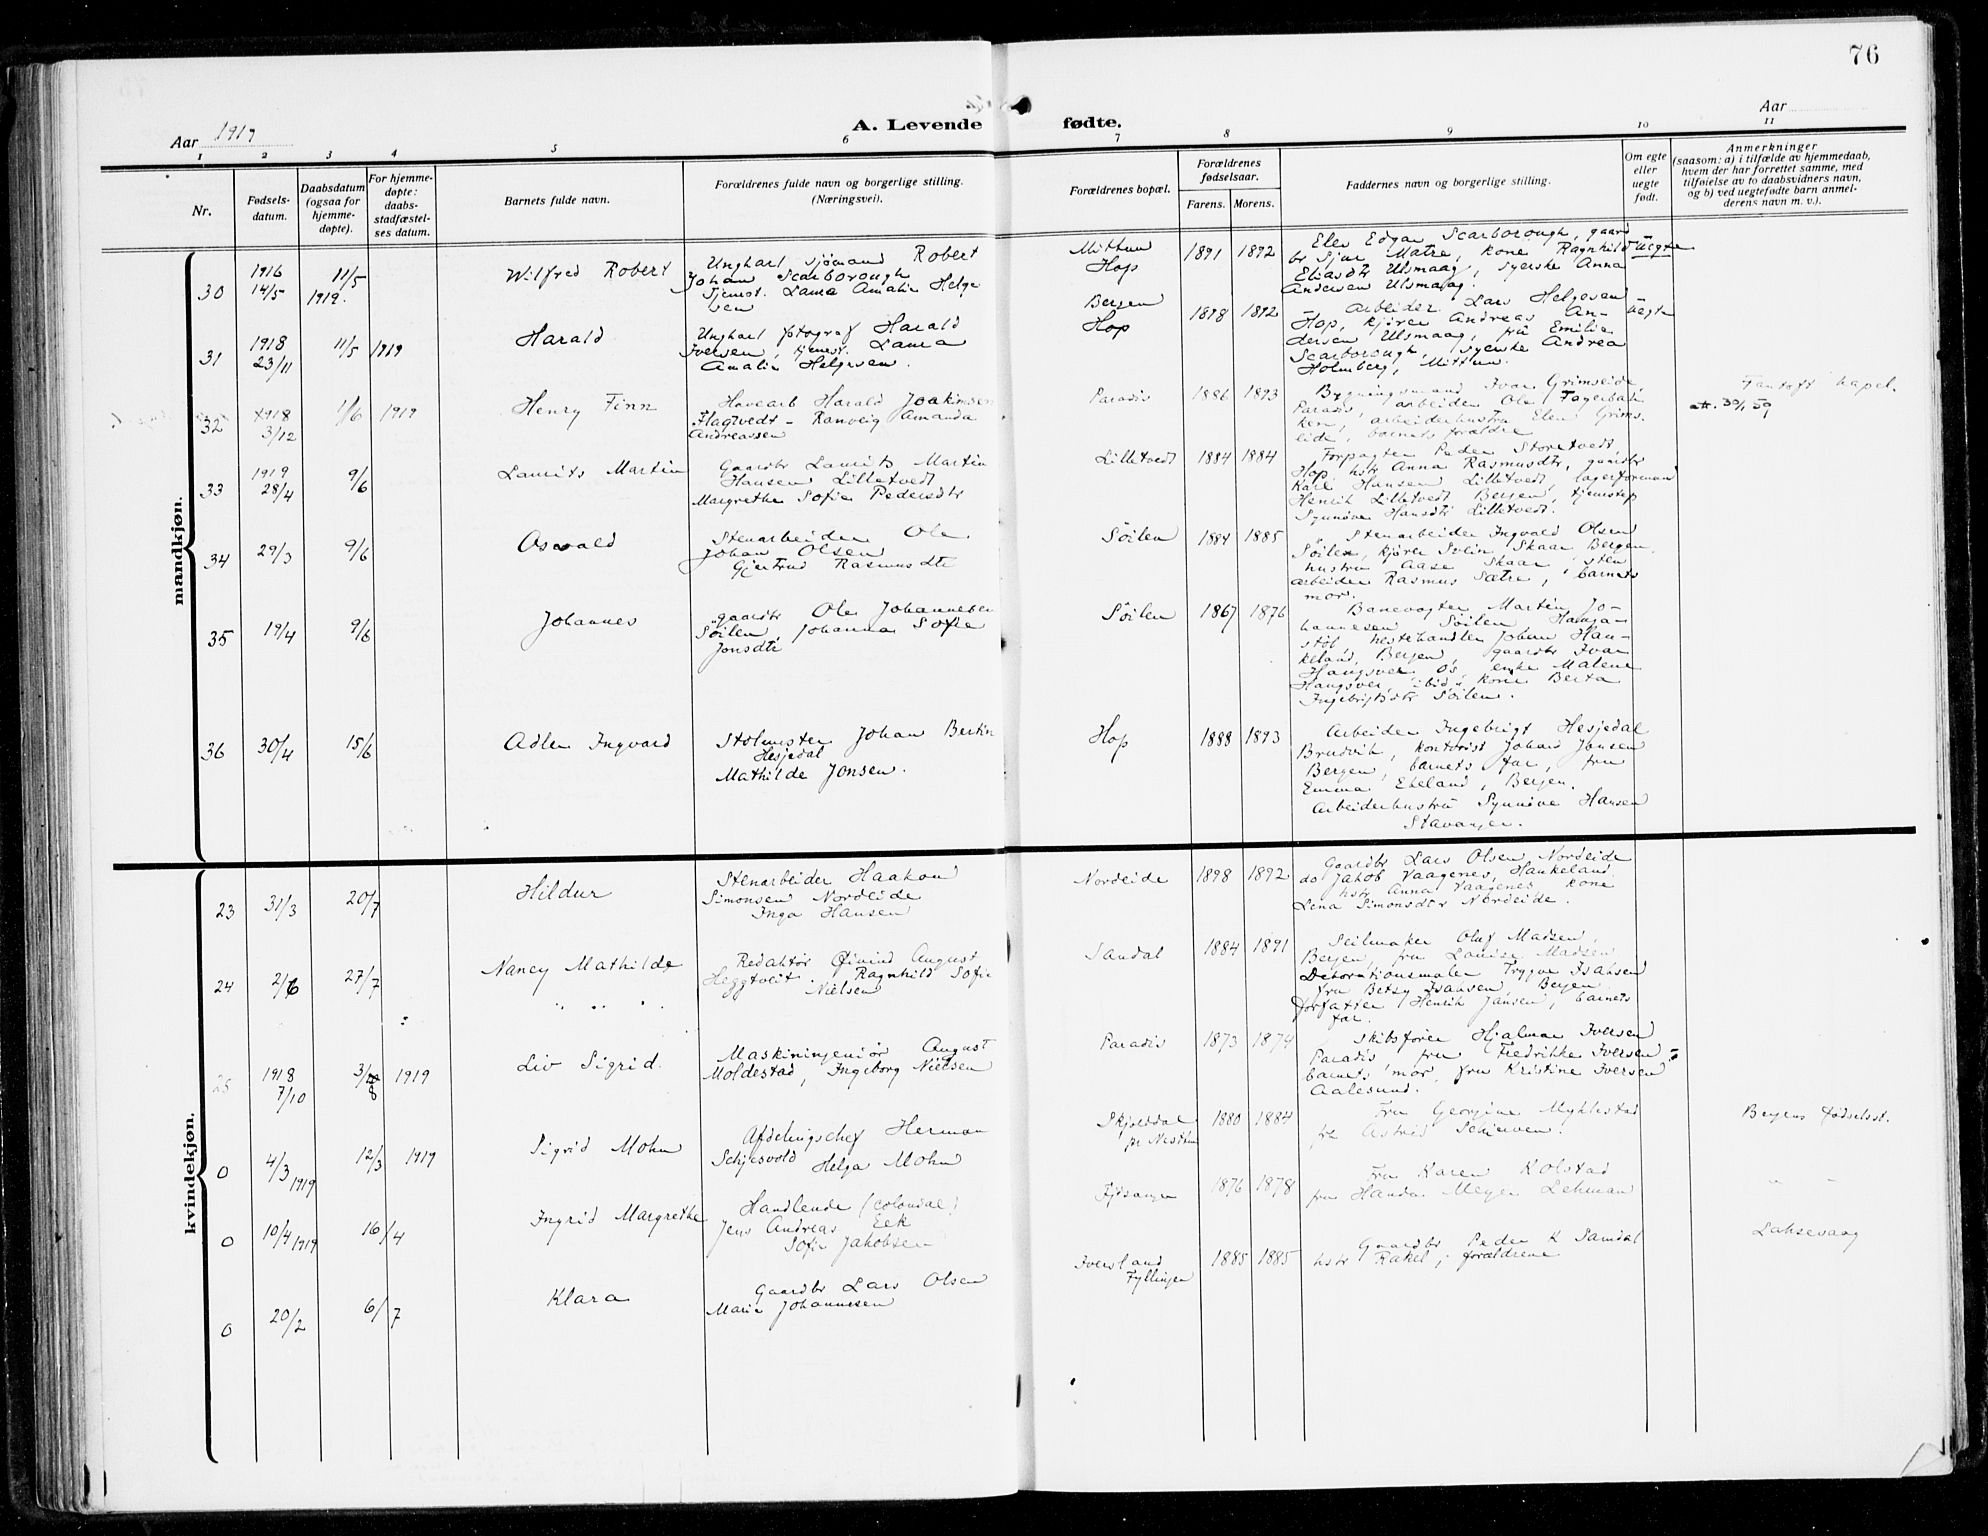 76
Aar 1919
A. Levende fødte.
Aar
1 2 3 4 5 6 7 8 9 10 11
Nr.
Fødsels-
datum.
Daabsdatum
(ogsaa for
hjemme-
døpte).
For hjemme-
døpte:
daabs-
stadfæstel-
ses datum.
Barnets fulde navn.
Forældrenes fulde navn og borgerlige stilling.
(Næringsvei).
Forældrenes bopæl.
Forældrenes
fødselsaar.
Farens. Morens.
Faddernes navn og borgerlige stilling.
Om egte
eller
uegte
født.
Anmerkninger
(saasom: a) i tilfælde av hjemmedaab,
hvem der har forrettet samme, med
tilføielse av to daabsvidners navn,
og b) ved uegtefødte barn anmel-
derens navn m. v.).
mandkjøn.
30
1916
14/5
11/5
1919.
Wilfred Robert
Ungkarl sjømand Robert
Johan Scarborough
Tjenest. Laura Amalie Helge
sen
Mittun
Hop
1891 1892
Elev Edgar Scarborough, gaard
br Sjur Matre, kone Ragnhild
Eliasdtr Ulsmaag, syerske Anna
Andersen Ulsmaag.
Uegte
31
1918
23/11
11/5 1919
Harald
Ungkarl fotograf Harald
Iversen, tjenest. Laura
Amalie Helgesen.
Bergen
Hop
1898 1892
Arbeider Lars Helgesen
Hop, kjører Andreas An-
dersen Ulsmaag, fru Emilie
Scarborough, syerske Andrea
Holmberg, Mittun.
Uegte
32
1918
3/12
1/6 1919
Henry Finn
Havearb Harald Joakimsen
Flagtvedt - Ranveig Amanda
Andreassen
Paradis
1886 1893
Bygningsmand Ivar Grimseide,
Paradis, arbeider Ole Fagerbak
ken, arbeiderhustru Elen Grims-
eide, barnets forældre
Fantoft kapel.
att. 30/1 59
33
1919
28/4
9/6
Laurits Martin
Gaardbr Laurits Martin
Hansen Lilletvedt
Margrethe Sofie Pedersdtr
Lilletvedt
1884 1884
Forpagter Peder Storetvedt,
Hop hstr Anna Rasmusdtr, gaardbr
Karl Hansen Lilletvedt, lagerformand
Henrik Lilletvedt Bergen, tjenestep
Synnøve Hansdtr Lilletvedt.
34
29/3
9/6
Osvald
Stenarbeider Ole
Johan Olsen
Gjertrud Rasmusdtr
Søilen
1884 1885
Stenarbeider Ingvald Olsen
Søilen, kjører Skaar Bergen.
hustru Aase Skaar, sten
arbeider Rasmus Sætre, barnets
mor.
35
19/4
9/6
Johannes
gaardbr Ole Johannesen
Søilen, Johanna Sofie
Jonsdtr
Søilen
1867 1876
Banevogter Martin Jo-
hannesen Søilen
hestehandler Johan Hau-
keland, Bergen gaardbr Ivar
Haugsver Os enke Malene
Haugsver ibid, kone Berta
Ingebrigtsdtr Søilen.
36
30/4
15/6
Adler Ingvard
Stolmester Johan Bertin
Hesjedal
Mathilde Jonsen.
Hop
1888 1893
Arbeider Ingebrigt Hesjedal
Bruvik, kontorist Johan Jonsen
Bergen, barnets far, fru
Emma Ekeland, Bergen.
Arbeiderhustru Synnøve Hansen
Stavanger.
kvindekjøn.
23
31/3
20/7
Hildur
Stenarbeider Haakon
Simonsen Nordeide
Inga Hansen
Nordeide
1898 1892
Gaardbr Lars Olsen Nordeide
do Jakob Vaagenes, Haukeland.
hstr Anna Vaagenes, kone
Lena Simonsdtr Nordeide.
24
2/6
27/7
Nancy Mathilde
Redaktør Øivind August
Heggtveit. Ragnhild Sofie
Nielsen
Sandal
1884 1891
Seilmaker Oluf Madsen,
Bergen, fru Louise Madsen
Dekorationsmaler Trygve Isaksen
fru Betsy Isaksen, Bergen
forfatter Henrik Jansen, barnets
far.
25
1918
7/10
3/8 1919
Liv Sigrid.
Maskiningeniør August
Moldestad, Ingeborg Nielsen
Paradis
1873 1874
Skibsfører Hjalmar Iversen
Paradis fru Fredrikke Iversen
barnets mor, fru Kristine Iversen
Aalesund.
0
4/3 1919
12/3 1919
Sigrid Mohn
Afdelingschef Herman
Schjesvold Helga Mohn
Skjolddal
pr Nesttun
1880 1884
Fru Georgine Myklestad
frk Astrid
Bergens fødselsst.
0
10/4 1919
16/4
Ingrid Margrethe
Handlende (colonial)
Jens Andreas Eek
Sofie Jakobsen
Fjøsanger
1876 1878
Fru Karen Kolstad
fru Handa Meyer Lehman
" "
0
20/2
6/7
Klara
Gaardbr Lars Olsen
Marie Johannesen
Iversland
Fyllingen
1885 1885
Gaardbr Peder K Samdal
hstr Rakel; forældrene
Laksevaag